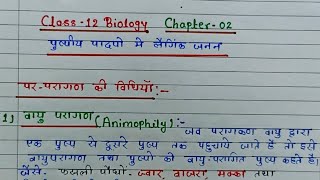 Class-12 Biology Chapter-02
पुष्पीय पादपो मे लैंगिक जनन
पर-परागण की विधियाँ:-
1) वायु परागण (Animophily):- जब परागकण वायु द्वारा
एक पुष्प से दूसरे पुष्प तक पहुचाये जाते है तो इसे
वायुपरागण तथा पुष्पो को वायु-परागित पुष्प कहते है।
जैसे- फसली पौधो- ज्वार, बाजरा, मक्का तथा